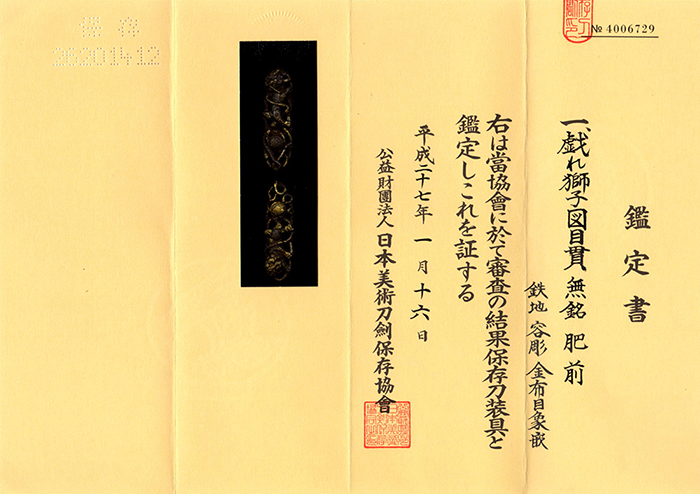 № 4006729
鑑定書
一、戯れ獅子図目貫 無銘 肥前
鉄地 容彫 金布目象嵌
右は當協會に於て審査の結果保存刀装具と
鑑定しこれを証する
平成二十七年一月十六日
公益財團法人 日本美術刀劍保存協會
保存